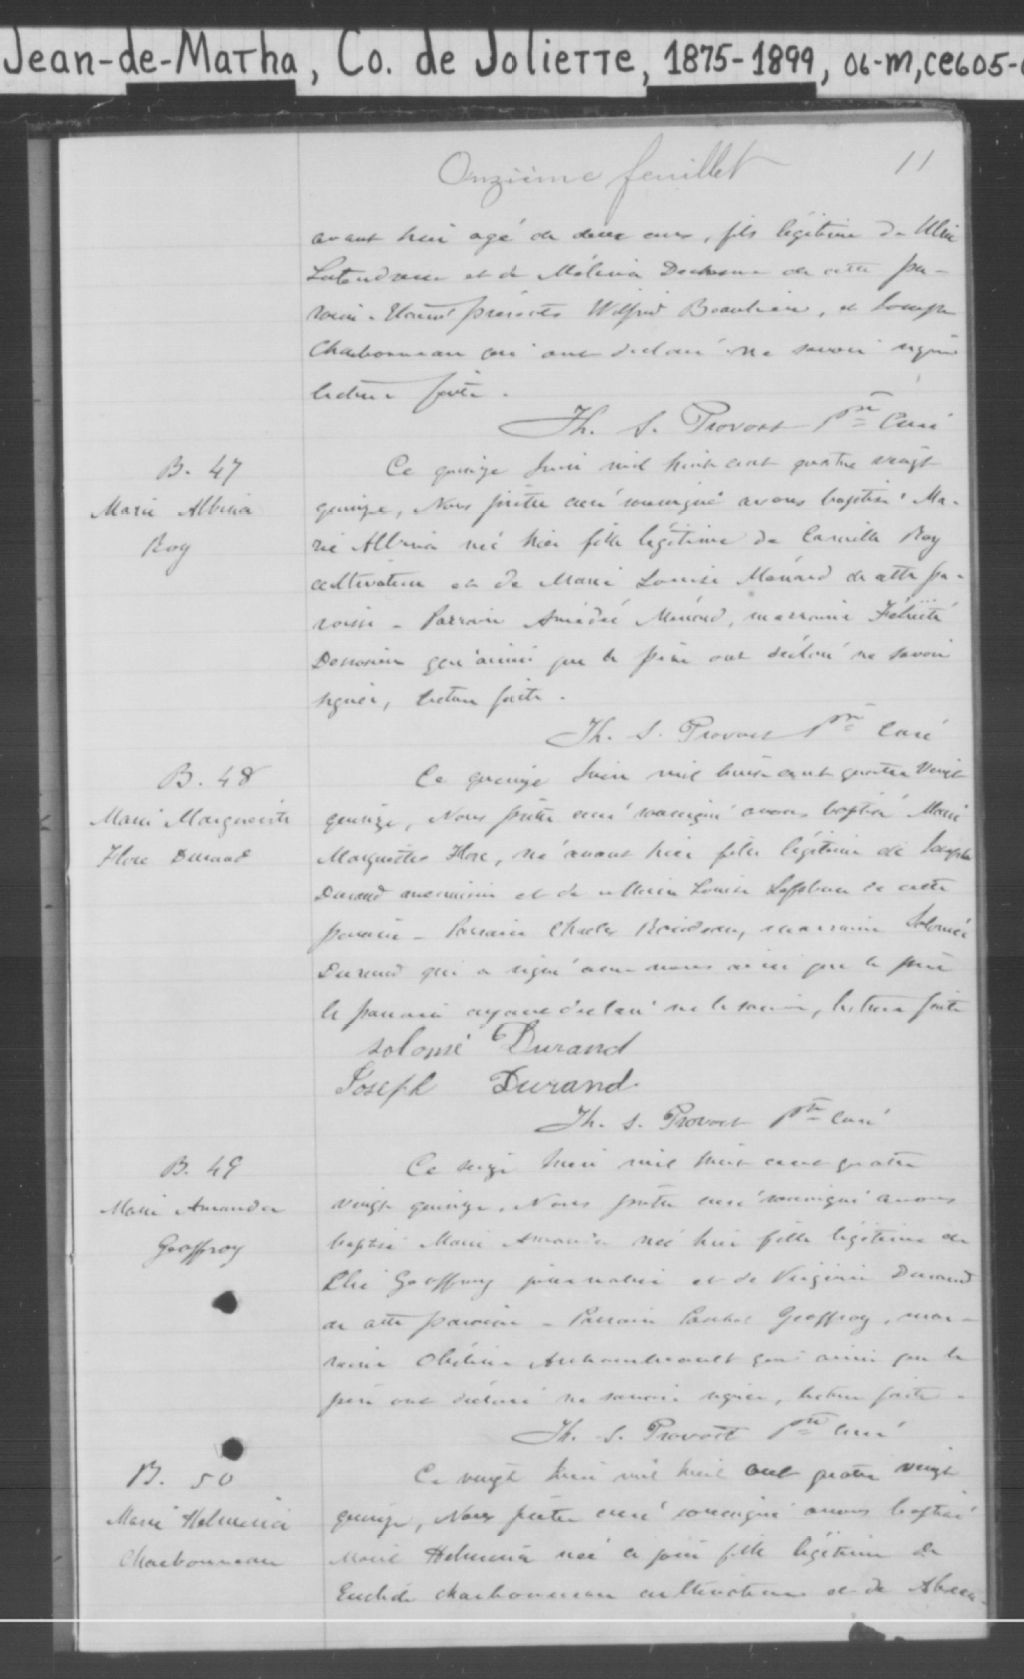 Jean-de-Matha, Co. de Joliette, 1875-1899, 06-M, CE605-
Onzième feuillet 11
avant hier agé de deux ans, fils légitime de Ulric
et de Mélina de cette pa-
roisse. Etaient présents Wilfrid Beaulieu, et Joseph
Charbonneau qui ont déclaré ne savoir signer
lecture faite.
Th. S. Provost Ptre Curé
B. 47
Marie Albina
Roy
Ce quinze Juin mil huit cent quatre vingt
quinze, Nous prêtre curé soussigné avons baptisé Ma-
rie Albina née hier fille légitime de Camille Roy
cultivateur et de Marie Louise Ménard de cette pa-
roisse - Parrain Amédée Ménard, marraine Félicité
qui ainsi que le père ont déclaré ne savoir
signer, lecture faite.
Th. S. Provost Ptre Curé
B. 48
Marie Marguerite
Flore Durand
Ce quinze Juin mil huit cent quatre vingt
quinze, Nous prêtre curé soussigné avons baptisé Marie
Marguerite Flore, née avant hier fille légitime de Joseph
Durand et de Marie Louise Lefebvre de cette
paroisse - Parrain Charles marraine Solomé
Durand qui a signé avec nous ainsi que le père
le parrain ayant déclaré ne le savoir, lecture faite
Solomé Durand
Joseph Durand
Th. S. Provost Ptre Curé
B. 49
Marie Amanda
Geoffroy
Ce seize Juin mil huit cent quatre
vingt quinze, Nous prêtre curé soussigné avons
baptisé Marie Amanda née hier fille légitime de
Elie Geoffroy journalier et de Virginie Durand
de cette paroisse - Parrain Geoffroy, mar-
raine Archambeault qui ainsi que le
père ont déclaré ne savoir signer, lecture faite -
Th. S. Provost Ptre Curé
B. 50
Marie Helmina
Charbonneau
Ce vingt Juin mil huit cent quatre vingt
quinze, Nous prêtre curé soussigné avons baptisé
Marie Helmina née ce jour fille légitime de
Euclide Charbonneau cultivateur et de